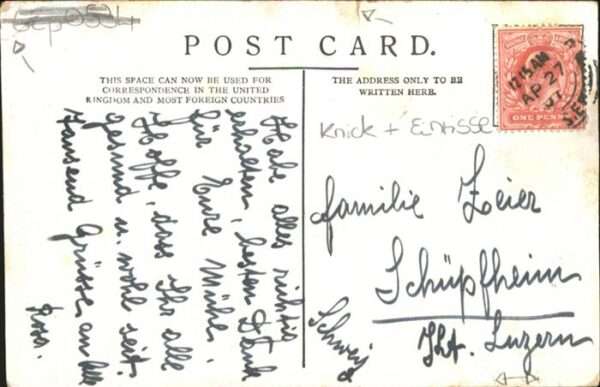 POST CARD.
THIS SPACE CAN NOW BE USED FOR
CORRESPONDENCE IN THE UNITED
KINGDOM AND MOST FOREIGN COUNTRIES
THE ADDRESS ONLY TO BE
WRITTEN HERE.
Habe alles richtig
erhalten, besten Dank
für Eure Mühe.
Hoffe, dass Ihr alle
gesund u. wohl seit.
Tausend Grüsse an alle
Knick + Einrisse
Familie Zeier
Schüpfheim
Kt. Luzern
Schweiz
11 15 AM
AP 27
07
ONE PENNY